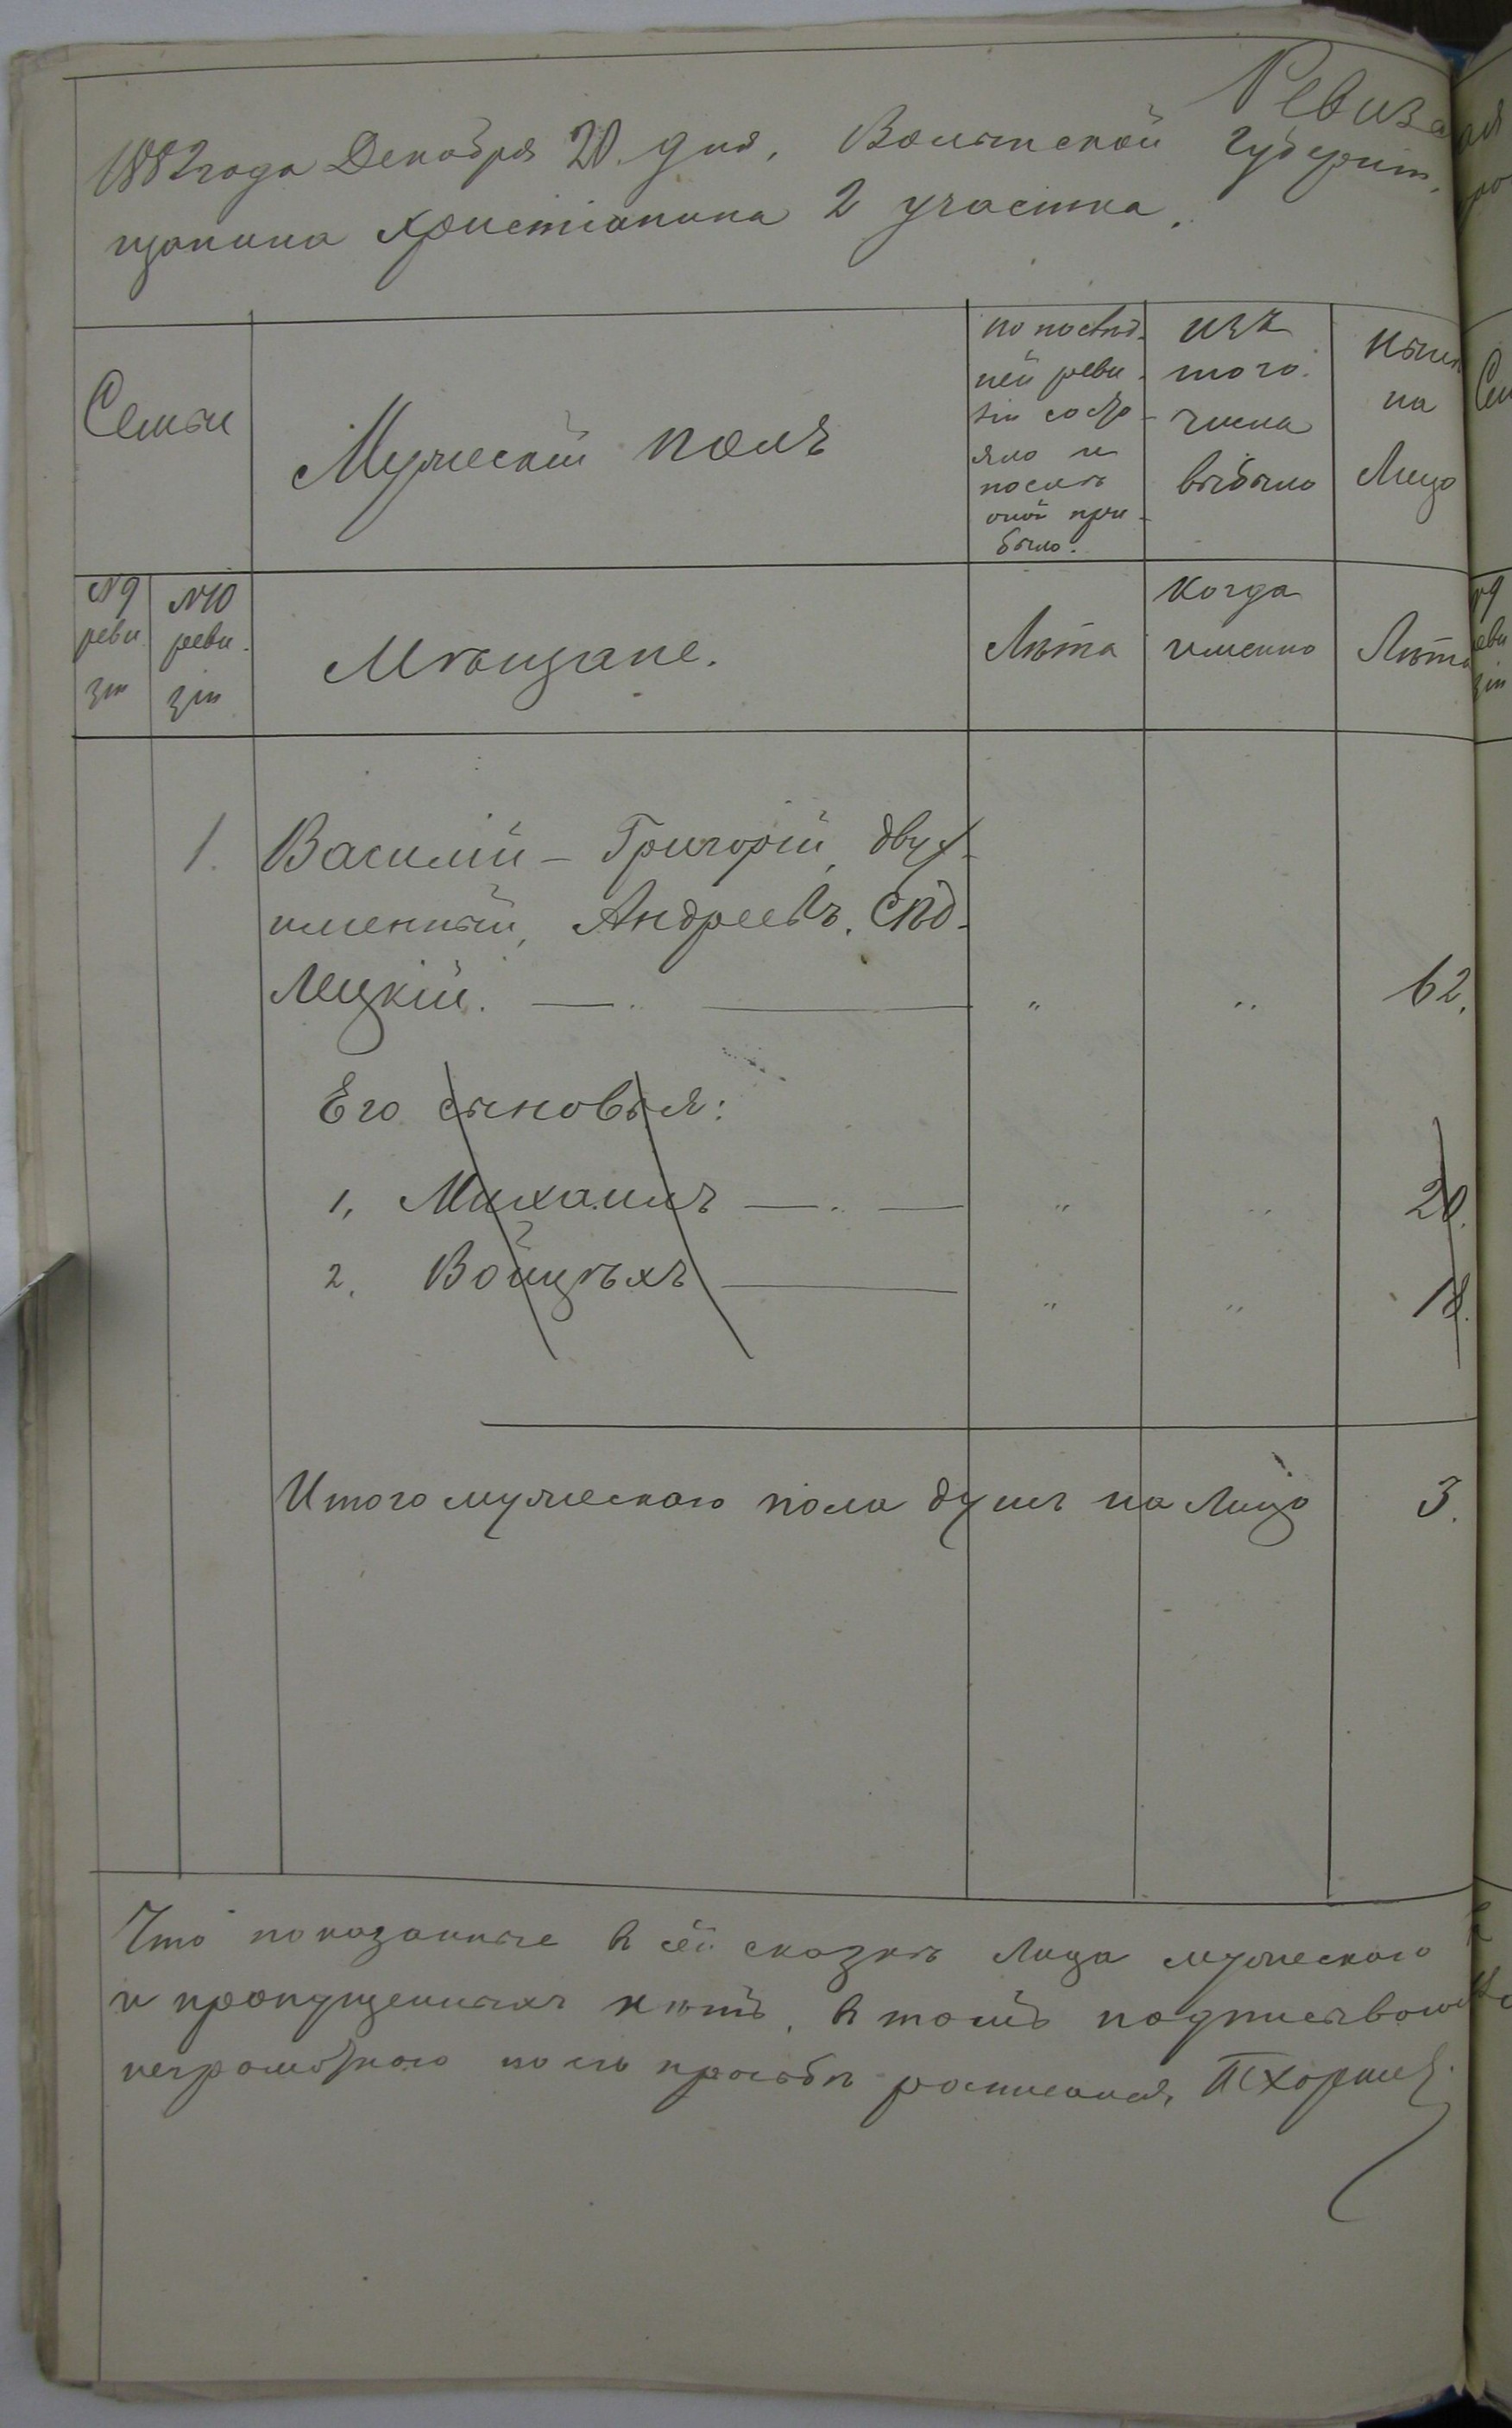 Ревиз
1882 года Декабря 20 дня, Волынской губерніи,
щанина христіанина 2 участка.
Семьи
Мужескій полъ
по послѣд-
ней реви-
зіи состо-
яло и
послѣ
оной при-
было.
изъ
того
числа
выбыло
Нынѣ
на
Лицо
№9
реви
зіи
№10
реви-
зіи
Мѣщане.
Лѣта
когда
именно
Лѣта
1. Василій - Григорій, двух-
именный, Андреевъ, Сѣд-
лецкій. — „ „ 62.
Его сыновья:
1, Михаилъ — „ „ 20.
2, Войцѣхъ — „ „ 18.
Итого мужескаго пола душъ на Лицо 3.
Что показанные в сей сказкѣ Лица мужескаго
и пропущенныхъ нѣтъ, в томъ подписываюсь
неграмотнаго по его просьбѣ росписался,